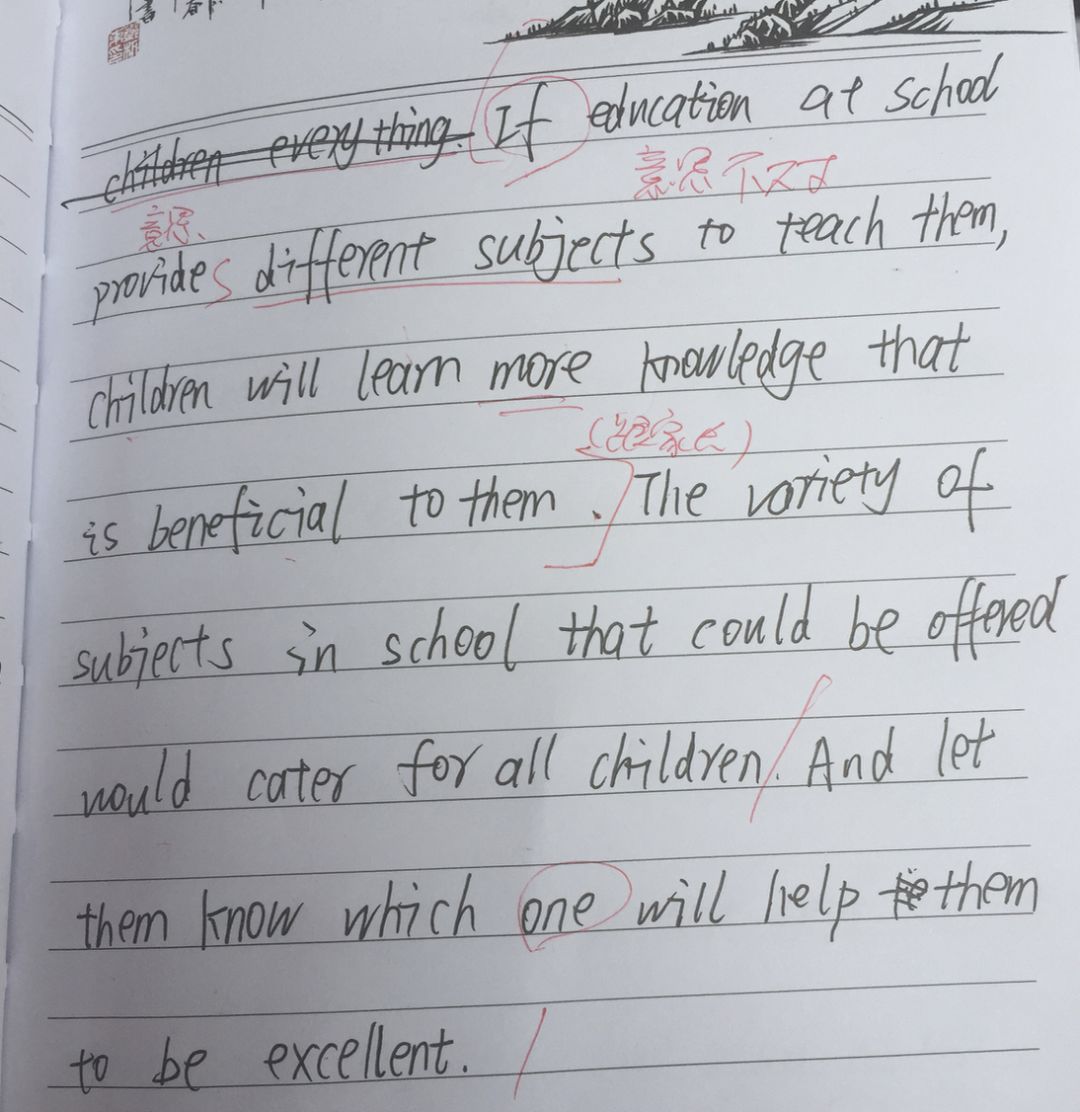 children everything. If education at school
意思不对
意思、
provides different subjects to teach them,
children will learn more knowledge that
(跟家长)
is beneficial to them . The variety of
subjects in school that could be offered
would cater for all children. And let
them know which one will help them
to be excellent.